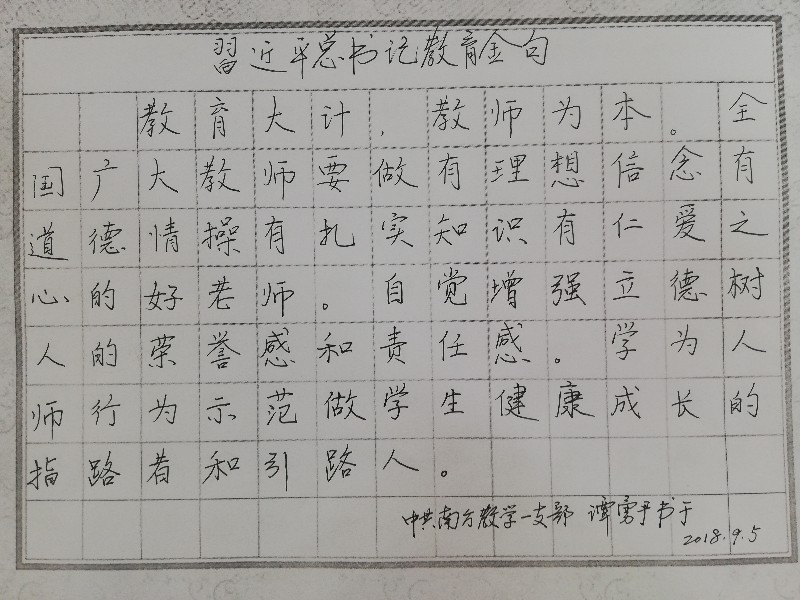 習近平总书记教育金句
教育大计，教师为本。全
国广大教师要做有理想信念有
道德情操有扎实知识有仁爱之
心的好老师。自觉增强立德树
人的荣誉感和责任感。学为人
师行为示范做学生健康成长的
指路者和引路人。
中共南方教学一支部 谭勇平书于
2018.9.5